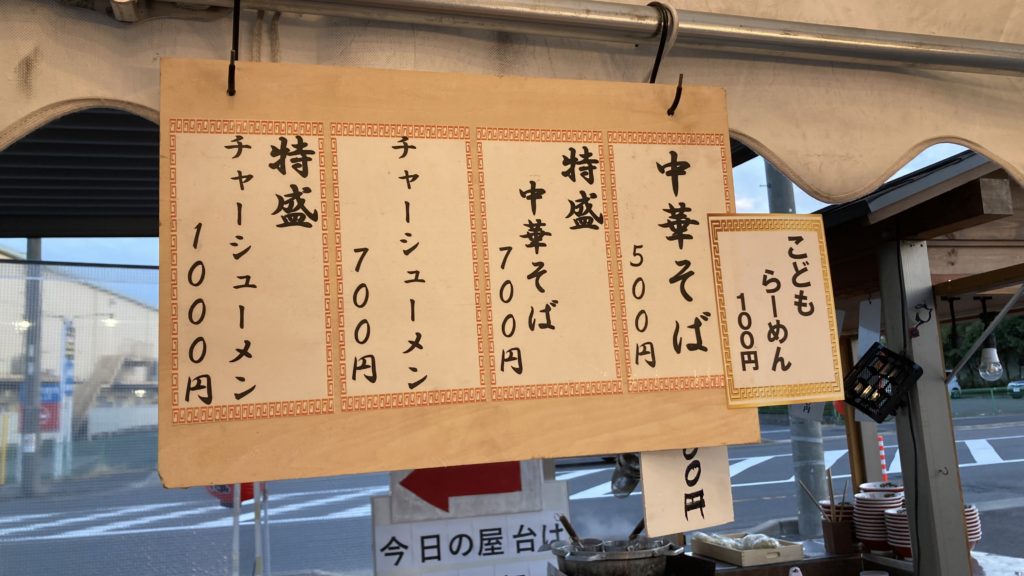 中華そば
500円
特盛
中華そば
700円
チャーシューメン
700円
特盛
チャーシューメン
1000円
こども
らーめん
100円
00円
今日の屋台は